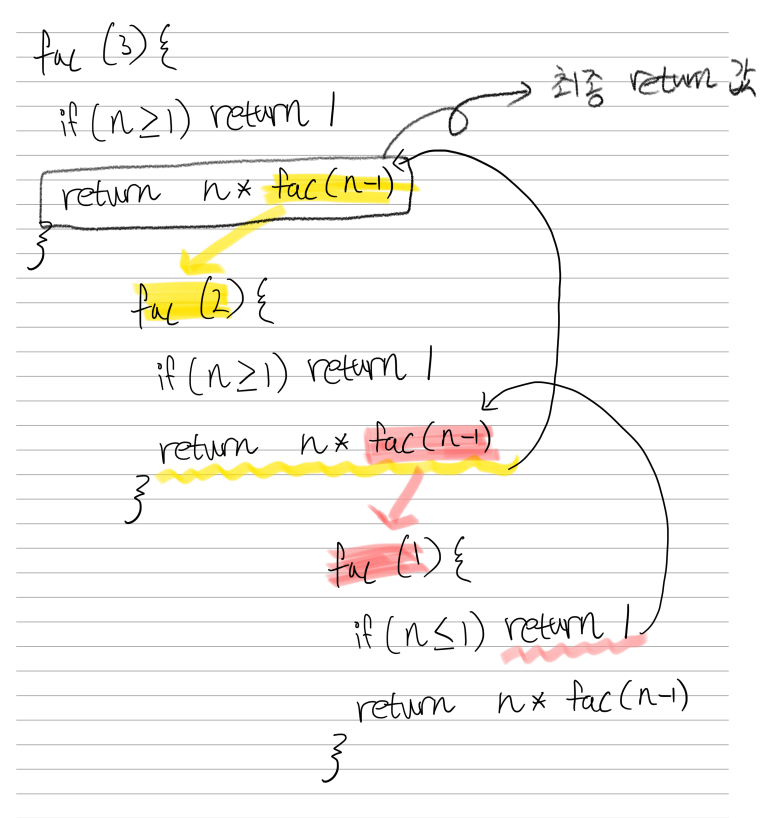 fac (3) {
최종 return 값
if (n≥1) return 1
return n * fac(n-1)
}
fac (2) {
if (n≥1) return 1
return n * fac(n-1)
}
fac (1) {
if (n≤1) return 1
return n * fac(n-1)
}